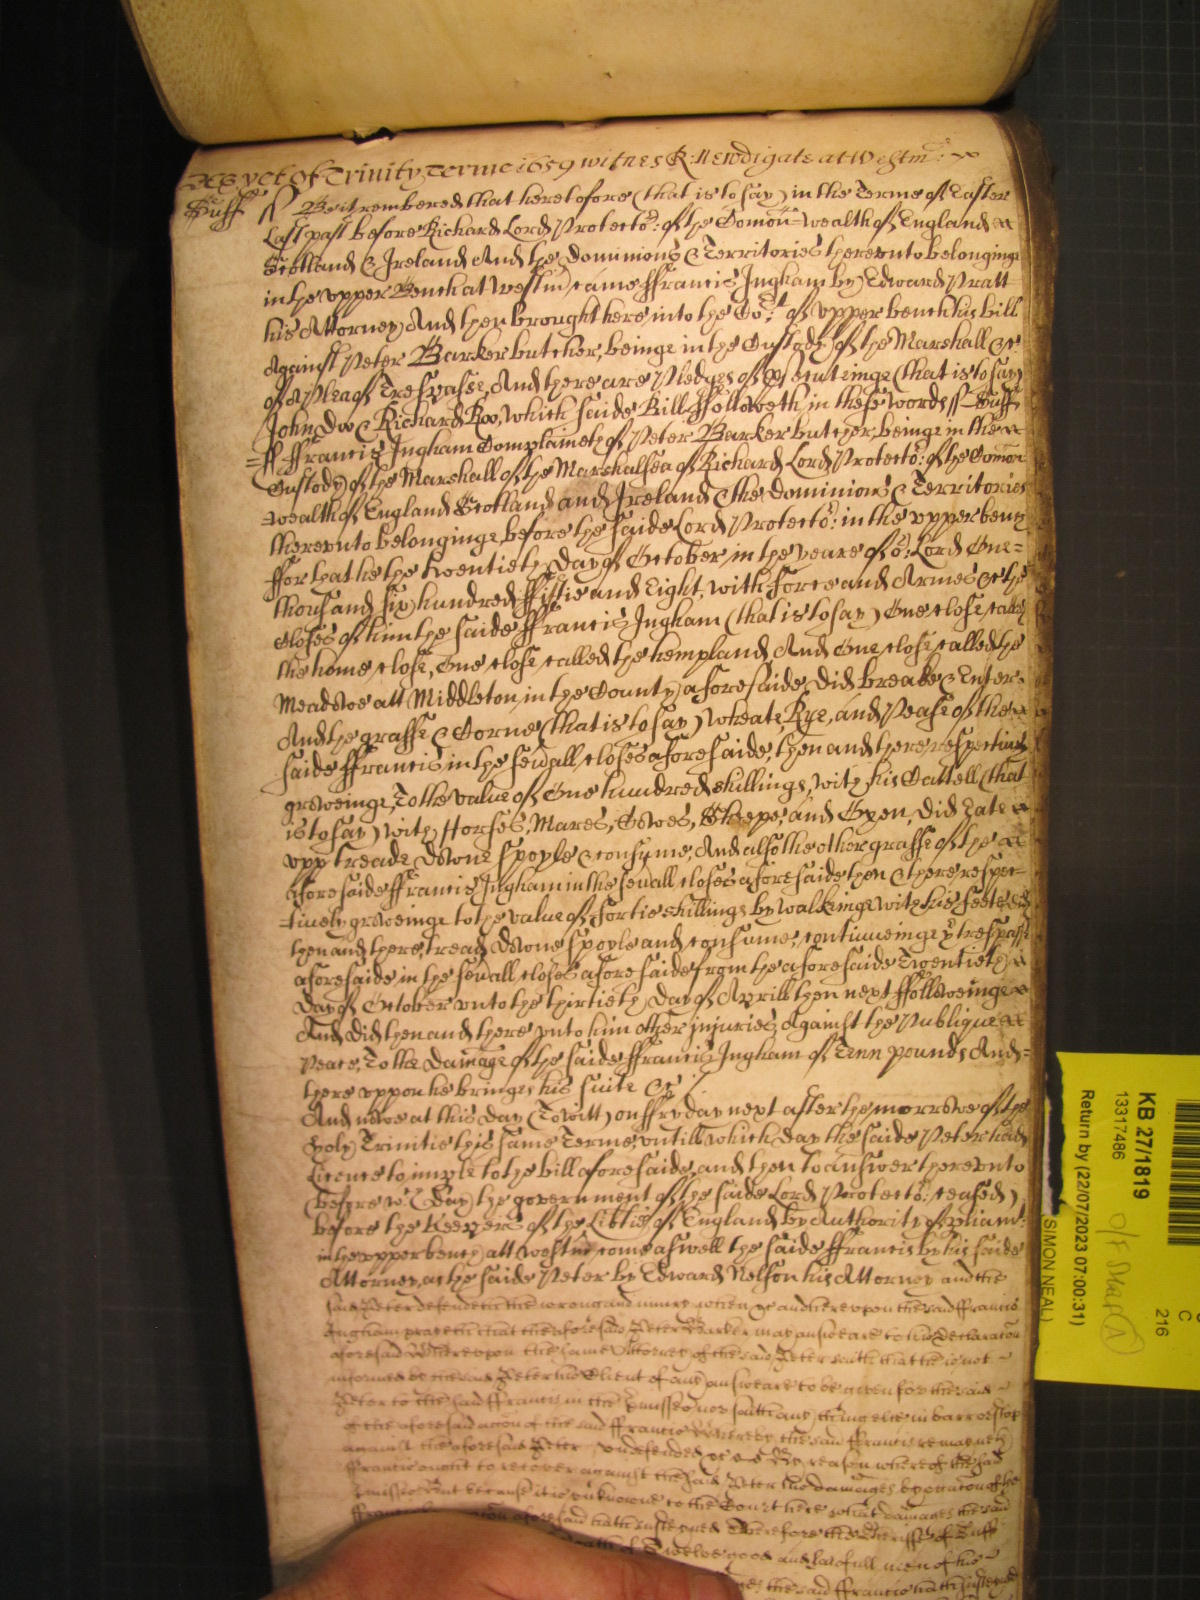 As yet of Trinity Terme 1659 witnes R: Newdigate at Westmr:
Suff ss Be it rembered that heretofore (that is to say) in the Terme of Easter
Last past before Richard Lord Protector: of the Comon=wealth of England
Scotland & Ireland And the Dominions & Territories thereunto belonginge
in the upper Bench at Westmr came ffrancis Ingham by Edward Pratt
his Attorney And then brought here into the Cort: of upper bench his bill
Against Peter Barker butcher, beinge in the Custody of the Marshall &c:
of A Plea of Trespasse, And there are Pledges of Prosecuteinge (that is to say)
John Doo & Richard Roo, which saide Bill ffolloweth in these words ss Suff
=ss ffrancis Ingham Complaineth of Peter Barker butcher, beinge in the
Custody of the Marshall of the Marshalsea of Richard Lord Protector: of the Comon
=wealth of England Scotland and Ireland & the Dominions & Territories
thereunto belonginge, before the saide Lord Protector: in the upper bench
ffor that he the twentieth Day of October, in the yeare of or: Lord One=
thousand six hundred ffiftie and Eight, with force and Armes &c the
Closes of him the saide ffrancis Ingham (that is to say) One close, called
the home close, One close called the hempland And One close called the
Meadowe att Middleton, in the County aforesaide, Did breake & Enter.
And the grasse & Corne (that is to say) Wheate, Rye, and Pease of the
saide ffrancis in the seuall closes aforesaide, then and there, respectiuely
groweinge, To the value of One hundred shillings, with his Cattell (that
is to say) with Horses, Mares, Cowes, Sheepe, and Oxen, Did Eate
upp treade Downe spoyle & consume, And alsoe the other grasse of the
aforesaide ffrancis Ingham in the seuall closes aforesaide then & there respec=
=tiuely groweinge to the value of fortie shillings by walkeinge with his feete did
then and there, tread Downe spoyle and consume, continueinge ye trespasse
aforesaide in the seuall closes aforesaide from the aforesaide Twentieth
Day of October unto the thirtieth Day of Aprill then next ffolloweinge
And did then and there unto him other injuries, Against the Publique
Peace, To the Damage of the saide ffrancis Ingham of Tenn pounds, And=
there uppon he bringes his suite &c
And nowe at this day (To witt) on ffryday next after the morrowe of the
holy Trinitie this same Terme, untill which Day the saide Peter had
Licence to imple to the bill aforesaide, and then to answer thereunto
(before wch: Day the government of the saide Lord Protector: ceased)
before the Keepers of the Libtie of England by Authority of pliamt:
in the upper bench att westmr come aswell the saide ffrancis by his saide
Attorney, as the saide Peter by Edward Nelson his Attorney and the
said Peter defendeth the wrong and iniury when &c and hereupon the said ffrancis
Ingham prayeth that the aforesaid Peter Barker may answeare to his Declaracon
aforesaid Whereupon the same Attorney of the said Peter saith that he is not
informed by the said Peter his Client of any answeare to be given for the said
Peter to the said ffrancis in the premisses nor saith any thing else in barr or stop
of the aforesaid accon of the said ffrancis Whereby the said ffrancis remayneth
against the aforesaid Peter undefended &c By reason whereof the said
ffrancis ought to recover against the said Peter his damages by occacon of the
premisses But because it is unknowne to the Court here what damages the said
aforesaid hath susteyned Therefore the Sheriffe of Suff
oath of Twelve good and lawfull men of his
the said ffrancis hath susteyned
KB 27/1819
13317486
Return by (22/07/2023 07:00:31)
SIMON NEAL)
C
216